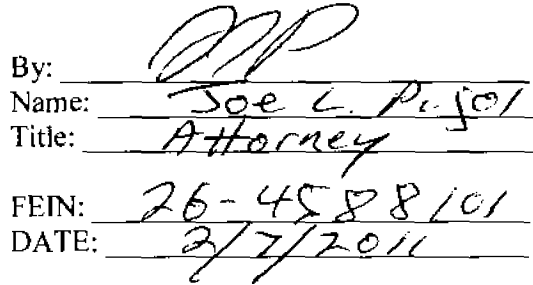 By:
Name: Joe L. Pujol
Title: Attorney
FEIN: 26-4588101
DATE: 2/7/2011